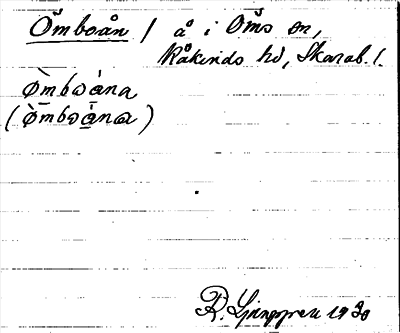 Ömboån / å i Öms sn,
Kåkinds hd, Skarab. l.
ømboána
(ømboána)
R. Ljunggren 1930